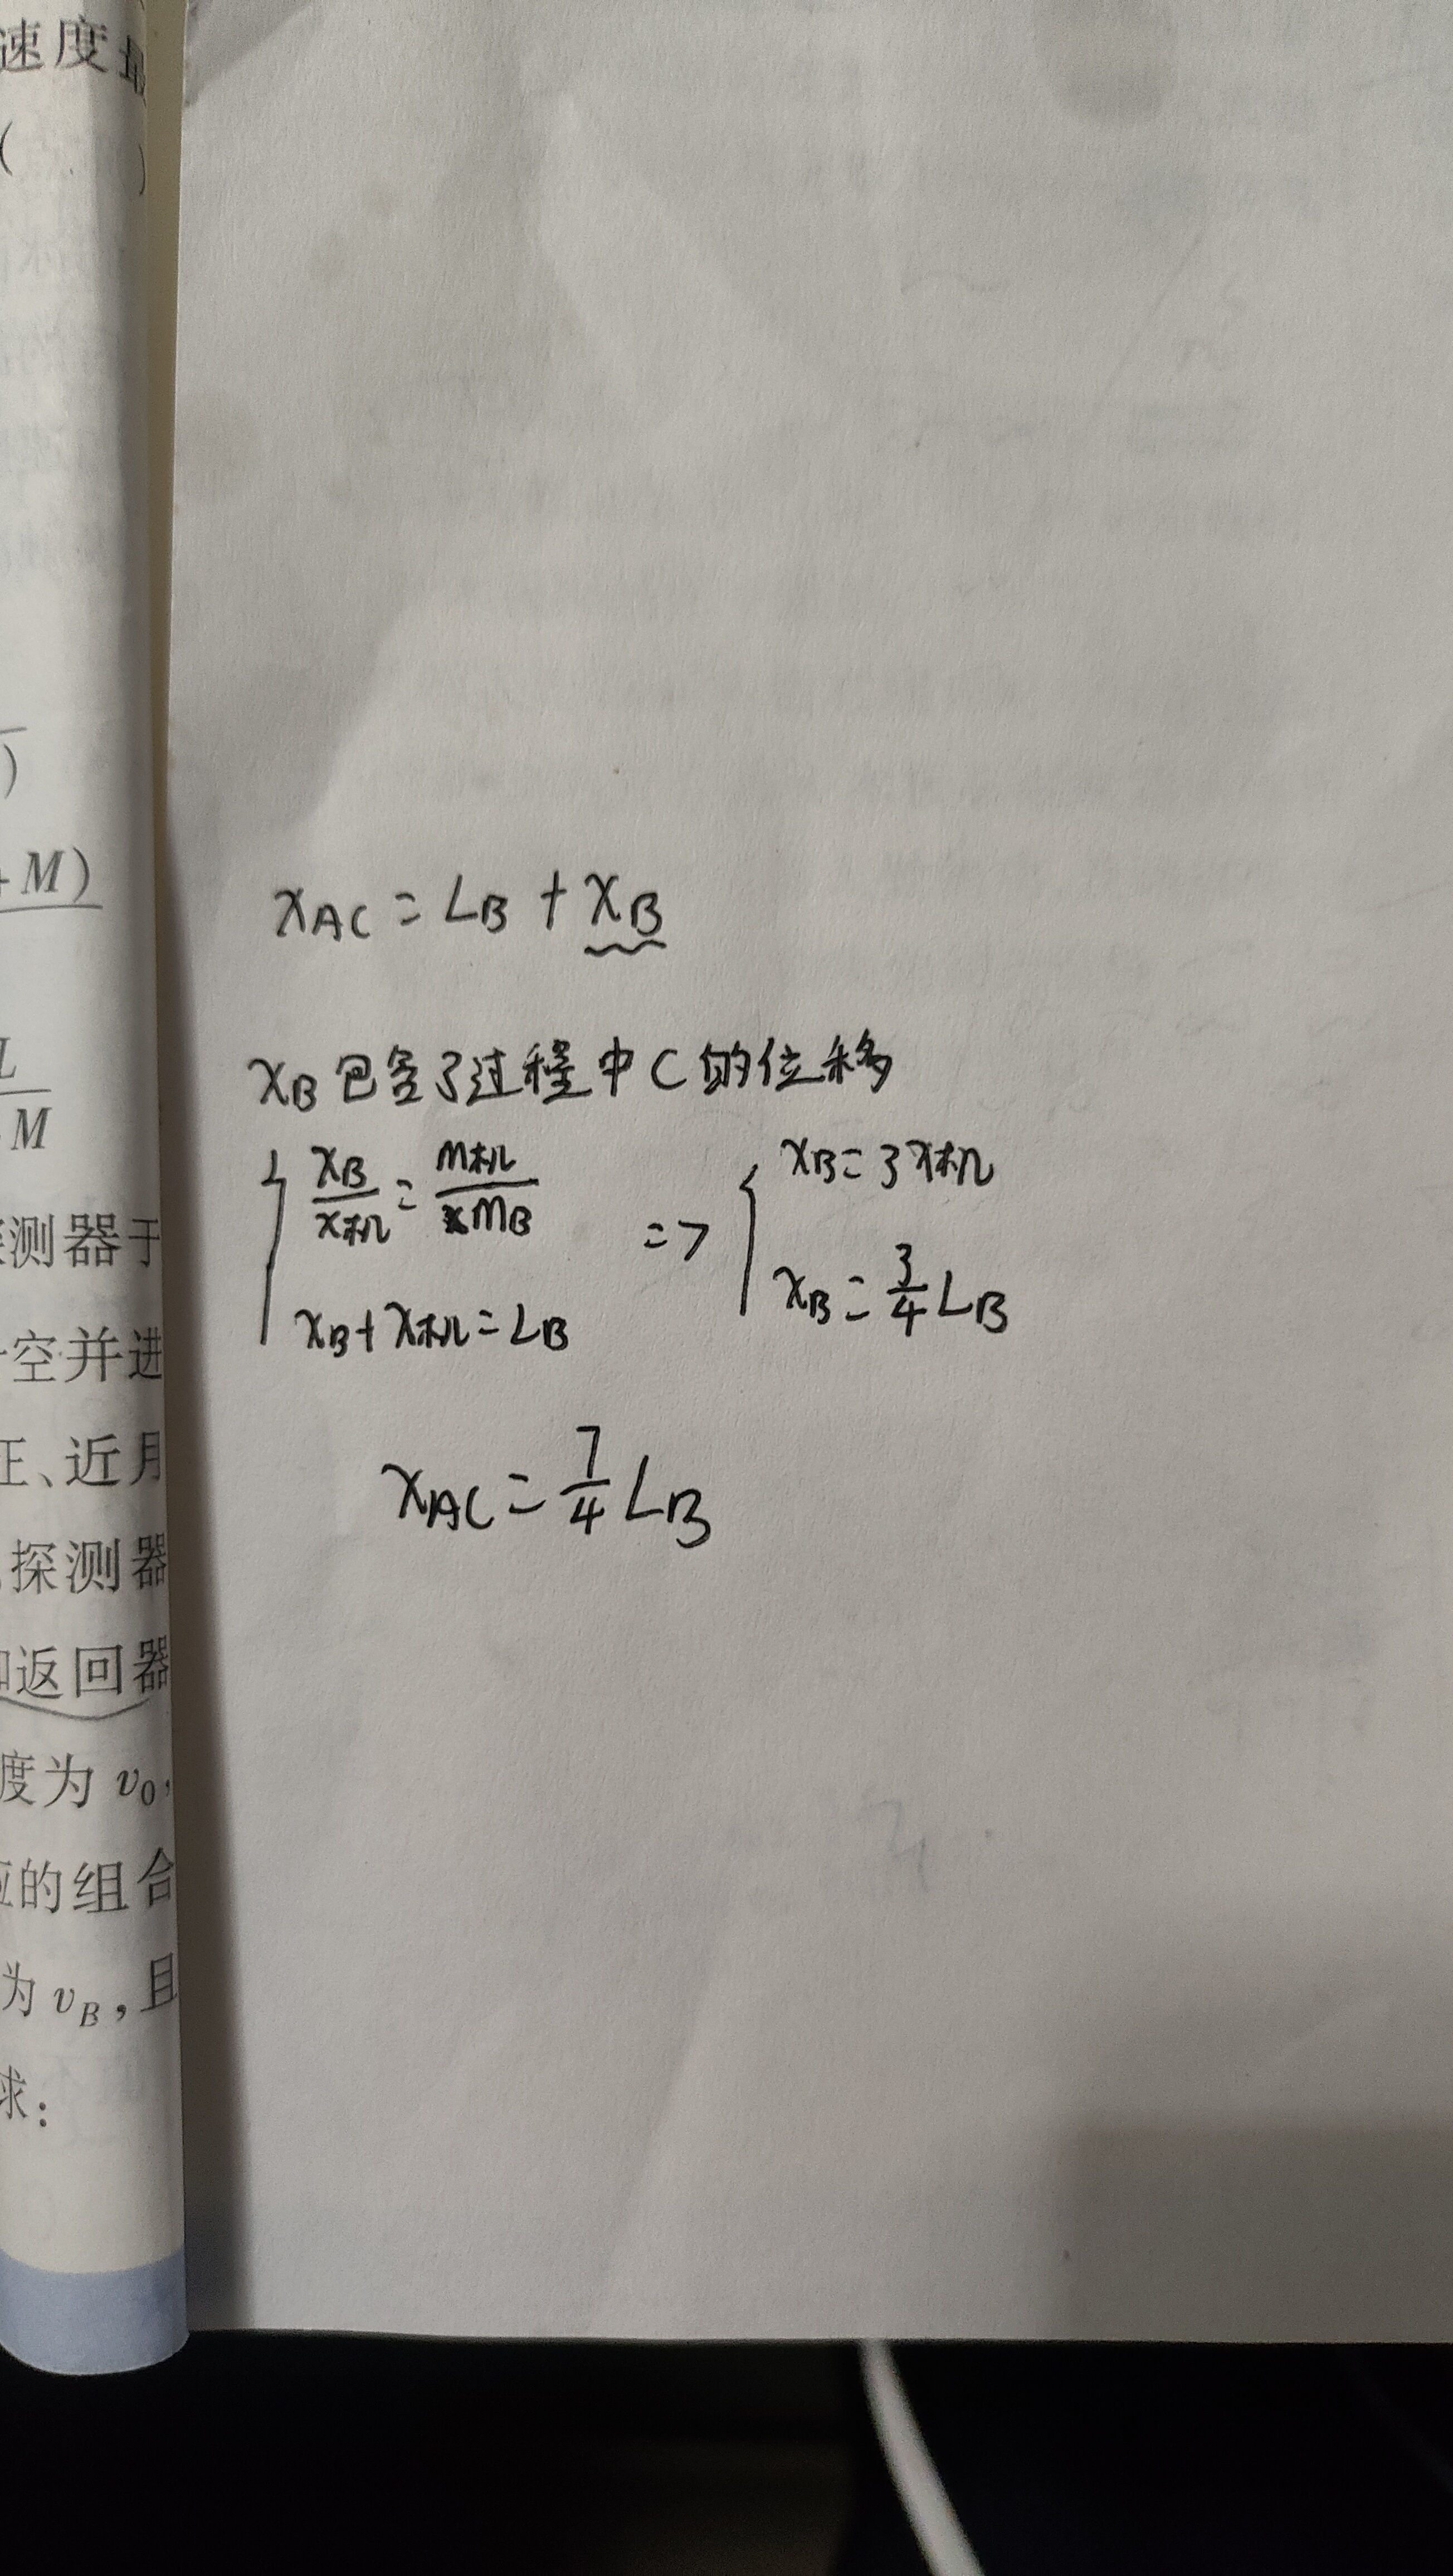 速度
( )
)
+M)
L
M
测器于
空并进
正、近月
探测器
返回器
度为 v₀,
的组合
为 v_B,且
求:
x_AC = L_B + x_B
x_B包含了过程中C的位移
{ x_B/x机 = m机/m_B => { x_B = 3x机
x_B + x机 = L_B x_B = 3/4 L_B
x_AC = 7/4 L_B